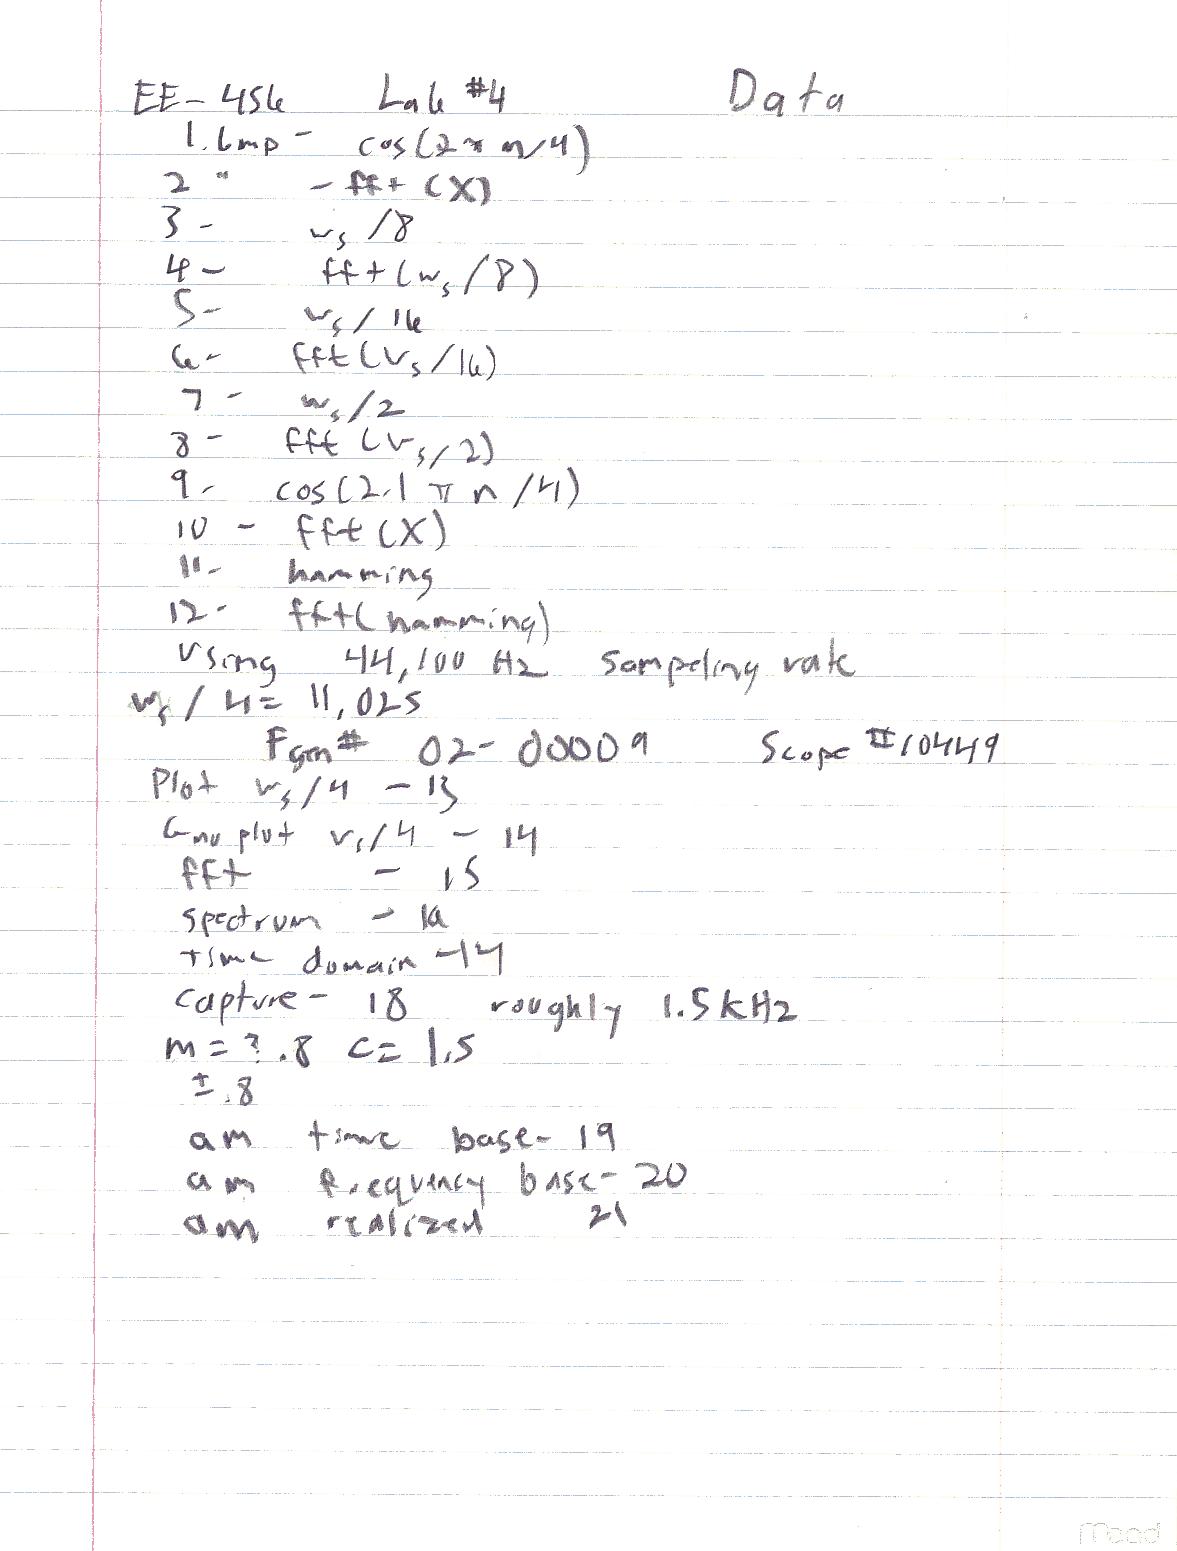 EE-456 Lab #4 Data
1.bmp - cos(2π n/4)
2 " - fft (X)
3 - ws /8
4 - fft(ws/8)
5- ws/16
6- fft(ws/16)
7 - ws/2
8 - fft (ws/2)
9- cos(2.1 π n/4)
10 - fft (X)
11- hamming
12- fft(hamming)
Using 44,100 Hz sampeling rate
ws/4= 11,025
Fgen# 02-00009 Scope #10449
Plot ws/4 - 13
Gnu plot ws/4 - 14
fft - 15
spectrum - 16
time domain -17
capture - 18 roughly 1.5kHz
m = ? .8 c= 1.5
± .8
am time base- 19
am frequency base- 20
am realized 21
Mead